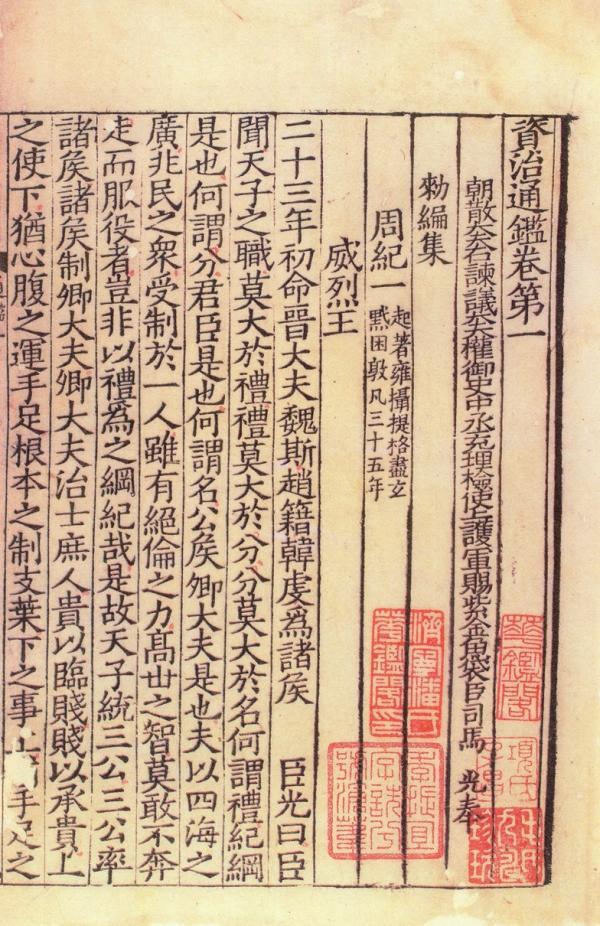 資治通鑑卷第一
朝散大夫右諫議大夫權御史中丞充理檢使上護軍賜紫金魚袋臣司馬　光奉
勑編集
周紀一　起著雍攝提格盡玄
黓困敦凡三十五年
威烈王
二十三年初命晉大夫魏斯趙籍韓虔爲諸侯　臣光曰臣
聞天子之職莫大於禮禮莫大於分分莫大於名何謂禮紀綱
是也何謂分君臣是也何謂名公侯卿大夫是也夫以四海之
廣兆民之衆受制於一人雖有絕倫之力高世之智莫敢不奔
走而服役者豈非以禮爲之綱紀哉是故天子統三公三公率
諸侯諸侯制卿大夫卿大夫治士庶人貴以臨賤賤以承貴上
之使下猶心腹之運手足根本之制支葉下之事上 手足之